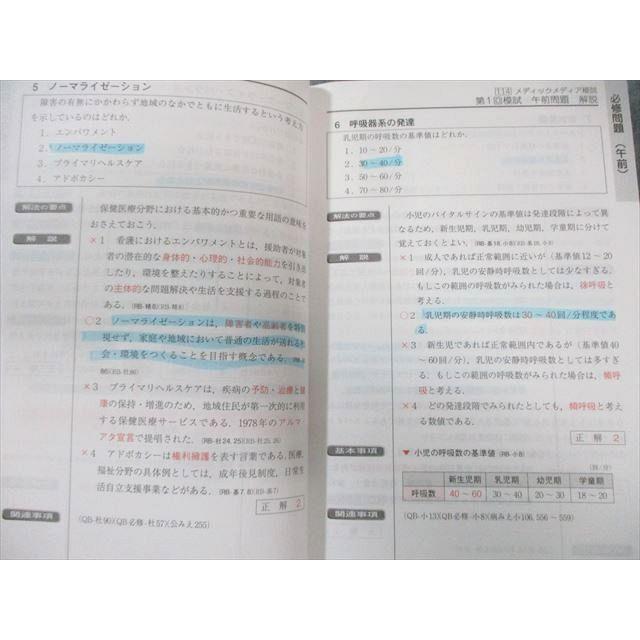 5 ノーマライゼーション
障害の有無にかかわらず地域のなかでともに生活するという考え方
を示しているのはどれか.
1. エンパワメント
2. ノーマライゼーション
3. プライマリヘルスケア
4. アドボカシー
解法の要点
保健医療分野における基本的かつ重要な用語の意味を
おさえておこう.
解説
×1 看護におけるエンパワメントとは、援助者が対象
者の潜在的な身体的・心理的・社会的能力を引き出
したり、環境を整えたりすることによって、対象者
の主体的な問題解決や生活を支援する過程のことで
ある.
○2 ノーマライゼーションは、障害者や高齢者を特別
視せず、家庭や地域において普通の生活が送れる社
会・環境をつくることを目指す概念である.
×3 プライマリヘルスケアは、疾病の予防・治療と健
康の保持・増進のため、地域住民が第一次的に利用
する保健医療サービスである. 1978年のアルマ・
アタ宣言で提唱された. (RB-社24,25)
×4 アドボカシーは権利擁護を表す言葉である. 医療、
福祉分野の具体例としては、成年後見制度、日常生
活自立支援事業などがある. (RB-基7,8)
正解 2
関連事項
(QB-社90)(QB必修-社57)(公みえ255)
114 メディックメディア模試
第1回模試 午前問題 解説
必修問題(午前)
6 呼吸器系の発達
乳児期の呼吸数の基準値はどれか.
1. 10～20/分
2. 30～40/分
3. 50～60/分
4. 70～80/分
解法の要点
小児のバイタルサインの基準値は発達段階によって異
なるため、新生児期、乳児期、幼児期、学童期に分けて
覚えておくとよい. (RB-小8)
解説
×1 成人であれば正常範囲に近いが (基準値12～20
回/分)、乳児の安静時呼吸数としては少なすぎる.
もしこの範囲の呼吸数がみられた場合は、徐呼吸と
考える.
○2 乳児期の安静時呼吸数は30～40回/分程度であ
る.
×3 新生児であれば正常範囲内であるが (基準値40
～60回/分)、乳児の安静時呼吸数としては多すぎ
る. もしこの範囲の呼吸数がみられた場合は、頻呼
吸と考える.
×4 どの発達段階でみられたとしても、頻呼吸と考え
る数値である.
正解 2
基本事項
▼ 小児の呼吸数の基準値 (RB-小8)
(回/分)
新生児期 乳児期 幼児期 学童期
呼吸数 40～60 30～40 20～30 18～20
関連事項
(QB-小13)(QB必修-小8)(病みえ小106,556～559)